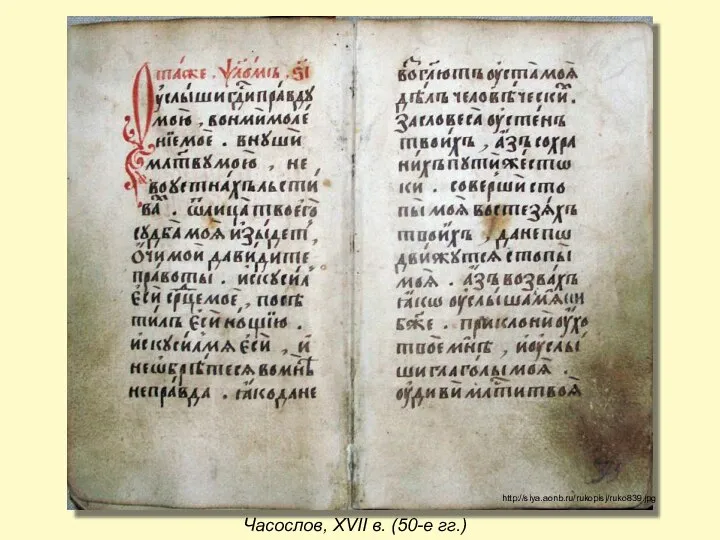 та́же . ѱало́мъ . ѕ҃і
ꙋслы́ши гд҇и пра́вдꙋ
мою̀ , вонми́ моле́
нїе моѐ . внꙋшѝ
мл҃твꙋ мою̀ , не
во ꙋстна́хъ льсти́
ва̑ . ѿ лица̀ твоего̀
сꙋдба̀ моѧ̀ и҆зы́детъ ,
ѻ҆́чи мои̑ да ви́дите
пра́воты . и҆скꙋси́лъ
є҆сѝ ср҃це моѐ , посѣ
ти́лъ є҆сѝ но́щїю .
и҆скꙋси́лъ мѧ є҆сѝ , и҆
не ѡ҆брѣ́тесѧ во мнѣ̀
непра́вда . ꙗ҆́ко да не
возгл҃ютъ ѹ҆ста̀ моѧ̀
дѣ́лъ человѣ́ческихъ .
за словеса̀ ѹ҆сте́нъ
твои́хъ , а҆́зъ сохра
ни́хъ пꙋти̑ же́стѡ
ки . соверши́ сто
пы̀ моѧ̀ во стезѧ́хъ
твои́хъ , да не пѡ
дви́жꙋтсѧ стопы̀
моѧ̀ . а҆́зъ возва́хъ
ꙗ҆́кѡ ѹ҆слы́ша мѧ̀ ши
бж҃е . приклони́ ѹ҆́хо
твоѐ мнѣ̀ , и҆ ѹ҆слы́
ши глаго́лы моѧ̀ .
ѹ҆диви́ мл҇ти твоѧ̀
http://siya.aonb.ru/rukopisj/ruko839.jpg
Часослов, XVII в. (50-е гг.)